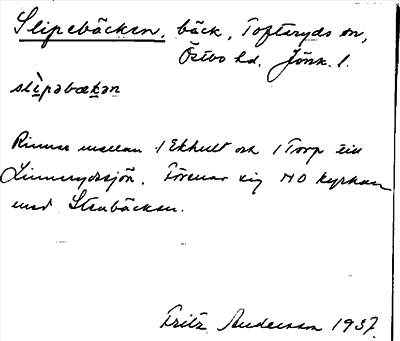 Slipebäcken, bäck, Tofteryds sn,
Östbo hd. Jönk. l.
slìpəbækən
Rinner mellan 1 Ekhult och 1 Torp till
Linnerydssjön. Förenar sig NO kyrkan
med Stenbäcken.
Fritz Andersson 1937.